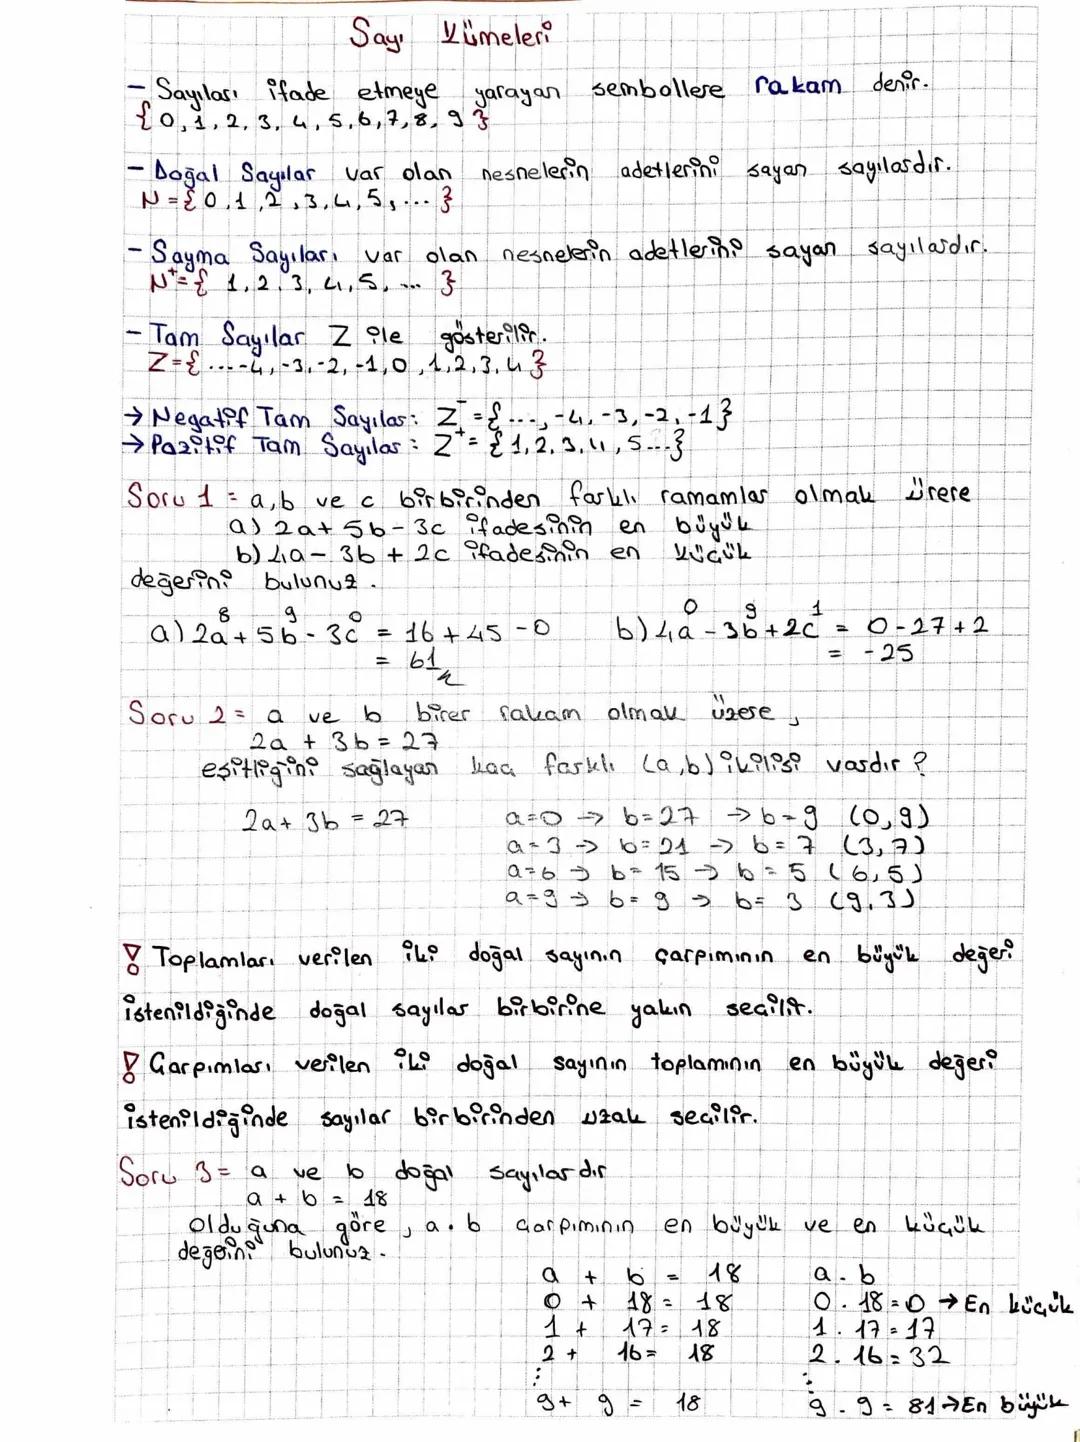 Sayı Kümeleri
- Sayıları ifade etmeye yarayan sembollere rakam denir.
{0,1,2,3,4,5,6,7,8,9}
- Doğal Sayılar var olan nesnelerin adetlerini sayan sayılardır.
N={0,1,2,3,4,5,...}
- Sayma Sayıları var olan nesnelerin adetlerini sayan sayılardır.
N⁺={1,2,3,4,5,...}
- Tam Sayılar Z ile gösterilir.
Z={...-4,-3,-2,-1,0,1,2,3,4}
→ Negatif Tam Sayılar: Z⁻={...,-4,-3,-2,-1}
→ Pozitif Tam Sayılar: Z⁺={1,2,3,4,5...}
Soru 1 = a,b ve c birbirinden farklı ramamlar olmak ürere
a) 2a + 5b - 3c ifadesinin en büyük
b) 4a - 3b + 2c ifadesinin en küçük
değerini bulunuz.
8 9 0 0 9 1
a) 2a + 5b - 3c = 16 + 45 - 0 b) 4a - 3b + 2c = 0 - 27 + 2
= 61 = -25
Soru 2 = a ve b birer rakam olmak üzere,
2a + 3b = 27
eşitliğini sağlayan kaç farklı (a,b) ikilisi vardır?
2a + 3b = 27 a=0 → b=27 → b=9 (0,9)
a=3 → b=21 → b=7 (3,7)
a=6 → b=15 → b=5 (6,5)
a=9 → b=9 → b=3 (9,3)
! Toplamları verilen iki doğal sayının çarpımının en büyük değeri
istenildiğinde doğal sayılar birbirine yakın seçilir.
! Çarpımları verilen iki doğal sayının toplamının en büyük değeri
istenildiğinde sayılar birbirinden uzak seçilir.
Soru 3 = a ve b doğal sayılardır
a + b = 18
Olduğuna göre, a.b çarpımının en büyük ve en küçük
değerini bulunuz.
a + b = 18 a.b
0 + 18 = 18 0.18=0 → En küçük
1 + 17 = 18 1.17=17
2 + 16 = 18 2.16=32
⋮ ⋮
9 + 9 = 18 9.9=81 → En büyük